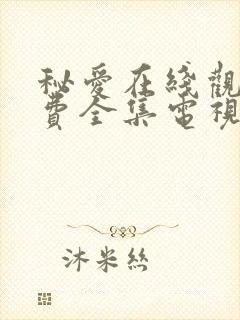 秘愛在綫觀
費全集電視
沐米絲